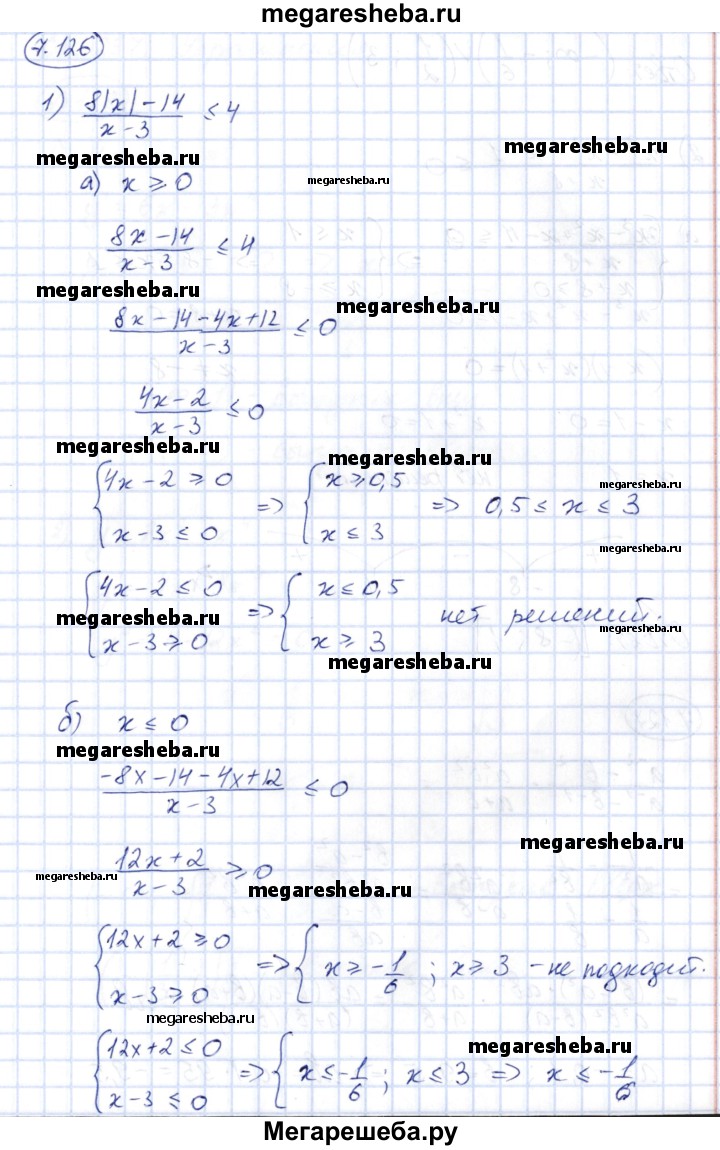 megaresheba.ru
7.126
1) (8|x| - 14)/(x - 3) ≤ 4
megaresheba.ru megaresheba.ru
а) x ≥ 0 megaresheba.ru
(8x - 14)/(x - 3) ≤ 4
megaresheba.ru megaresheba.ru
(8x - 14 - 4x + 12)/(x - 3) ≤ 0
(4x - 2)/(x - 3) ≤ 0
megaresheba.ru megaresheba.ru
{ 4x - 2 ≥ 0 => { x ≥ 0,5 => 0,5 ≤ x ≤ 3 megaresheba.ru
x - 3 ≤ 0 x ≤ 3
megaresheba.ru
{ 4x - 2 ≤ 0 => { x ≤ 0,5 нет решений.
megaresheba.ru megaresheba.ru
x - 3 ≥ 0 x ≥ 3
megaresheba.ru
б) x ≤ 0
megaresheba.ru
(-8x - 14 - 4x + 12)/(x - 3) ≤ 0
megaresheba.ru
(12x + 2)/(x - 3) ≥ 0
megaresheba.ru megaresheba.ru
{ 12x + 2 ≥ 0 => { x ≥ -1/6 ; x ≥ 3 - не подходит.
x - 3 ≥ 0
megaresheba.ru
{ 12x + 2 ≤ 0 => { x ≤ -1/6 ; x ≤ 3 => x ≤ -1/6
megaresheba.ru
x - 3 ≤ 0
Мегарешеба.ру